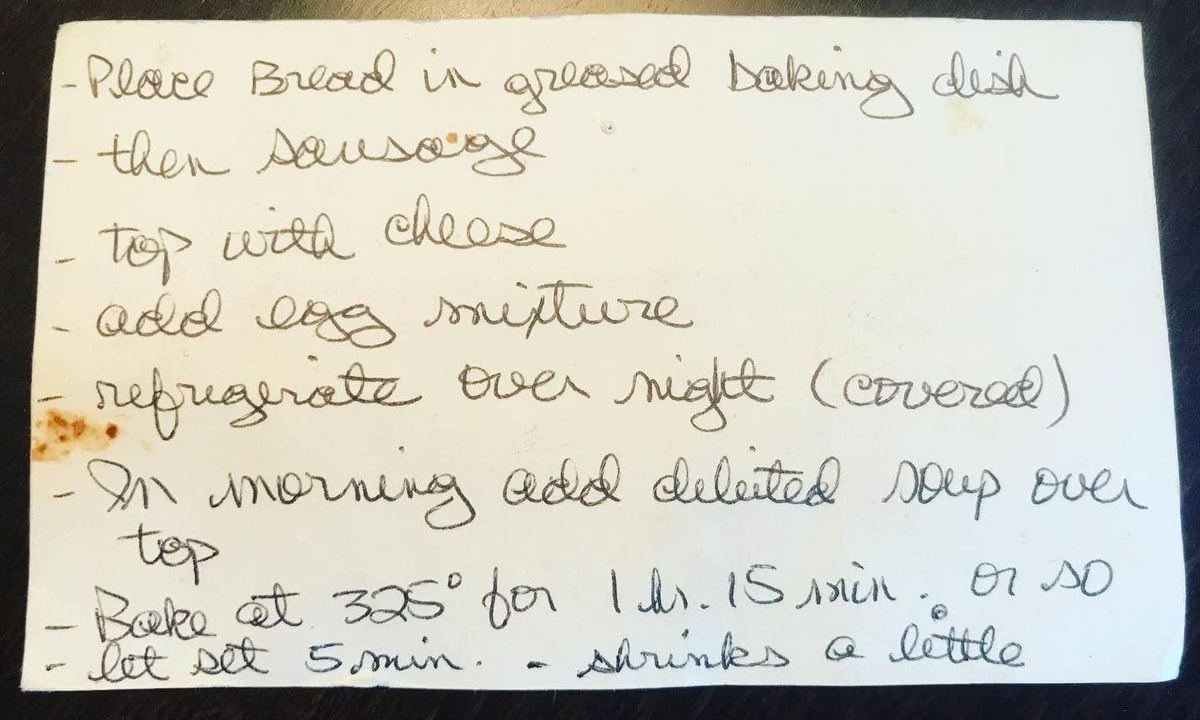 - Place Bread in greased baking dish
- then sausage
- top with cheese
- add egg mixture
- refrigerate over night (covered)
- In morning add deluted soup over
top
- Bake at 325° for 1 hr. 15 min. or so
- let set 5 min. - shrinks a little